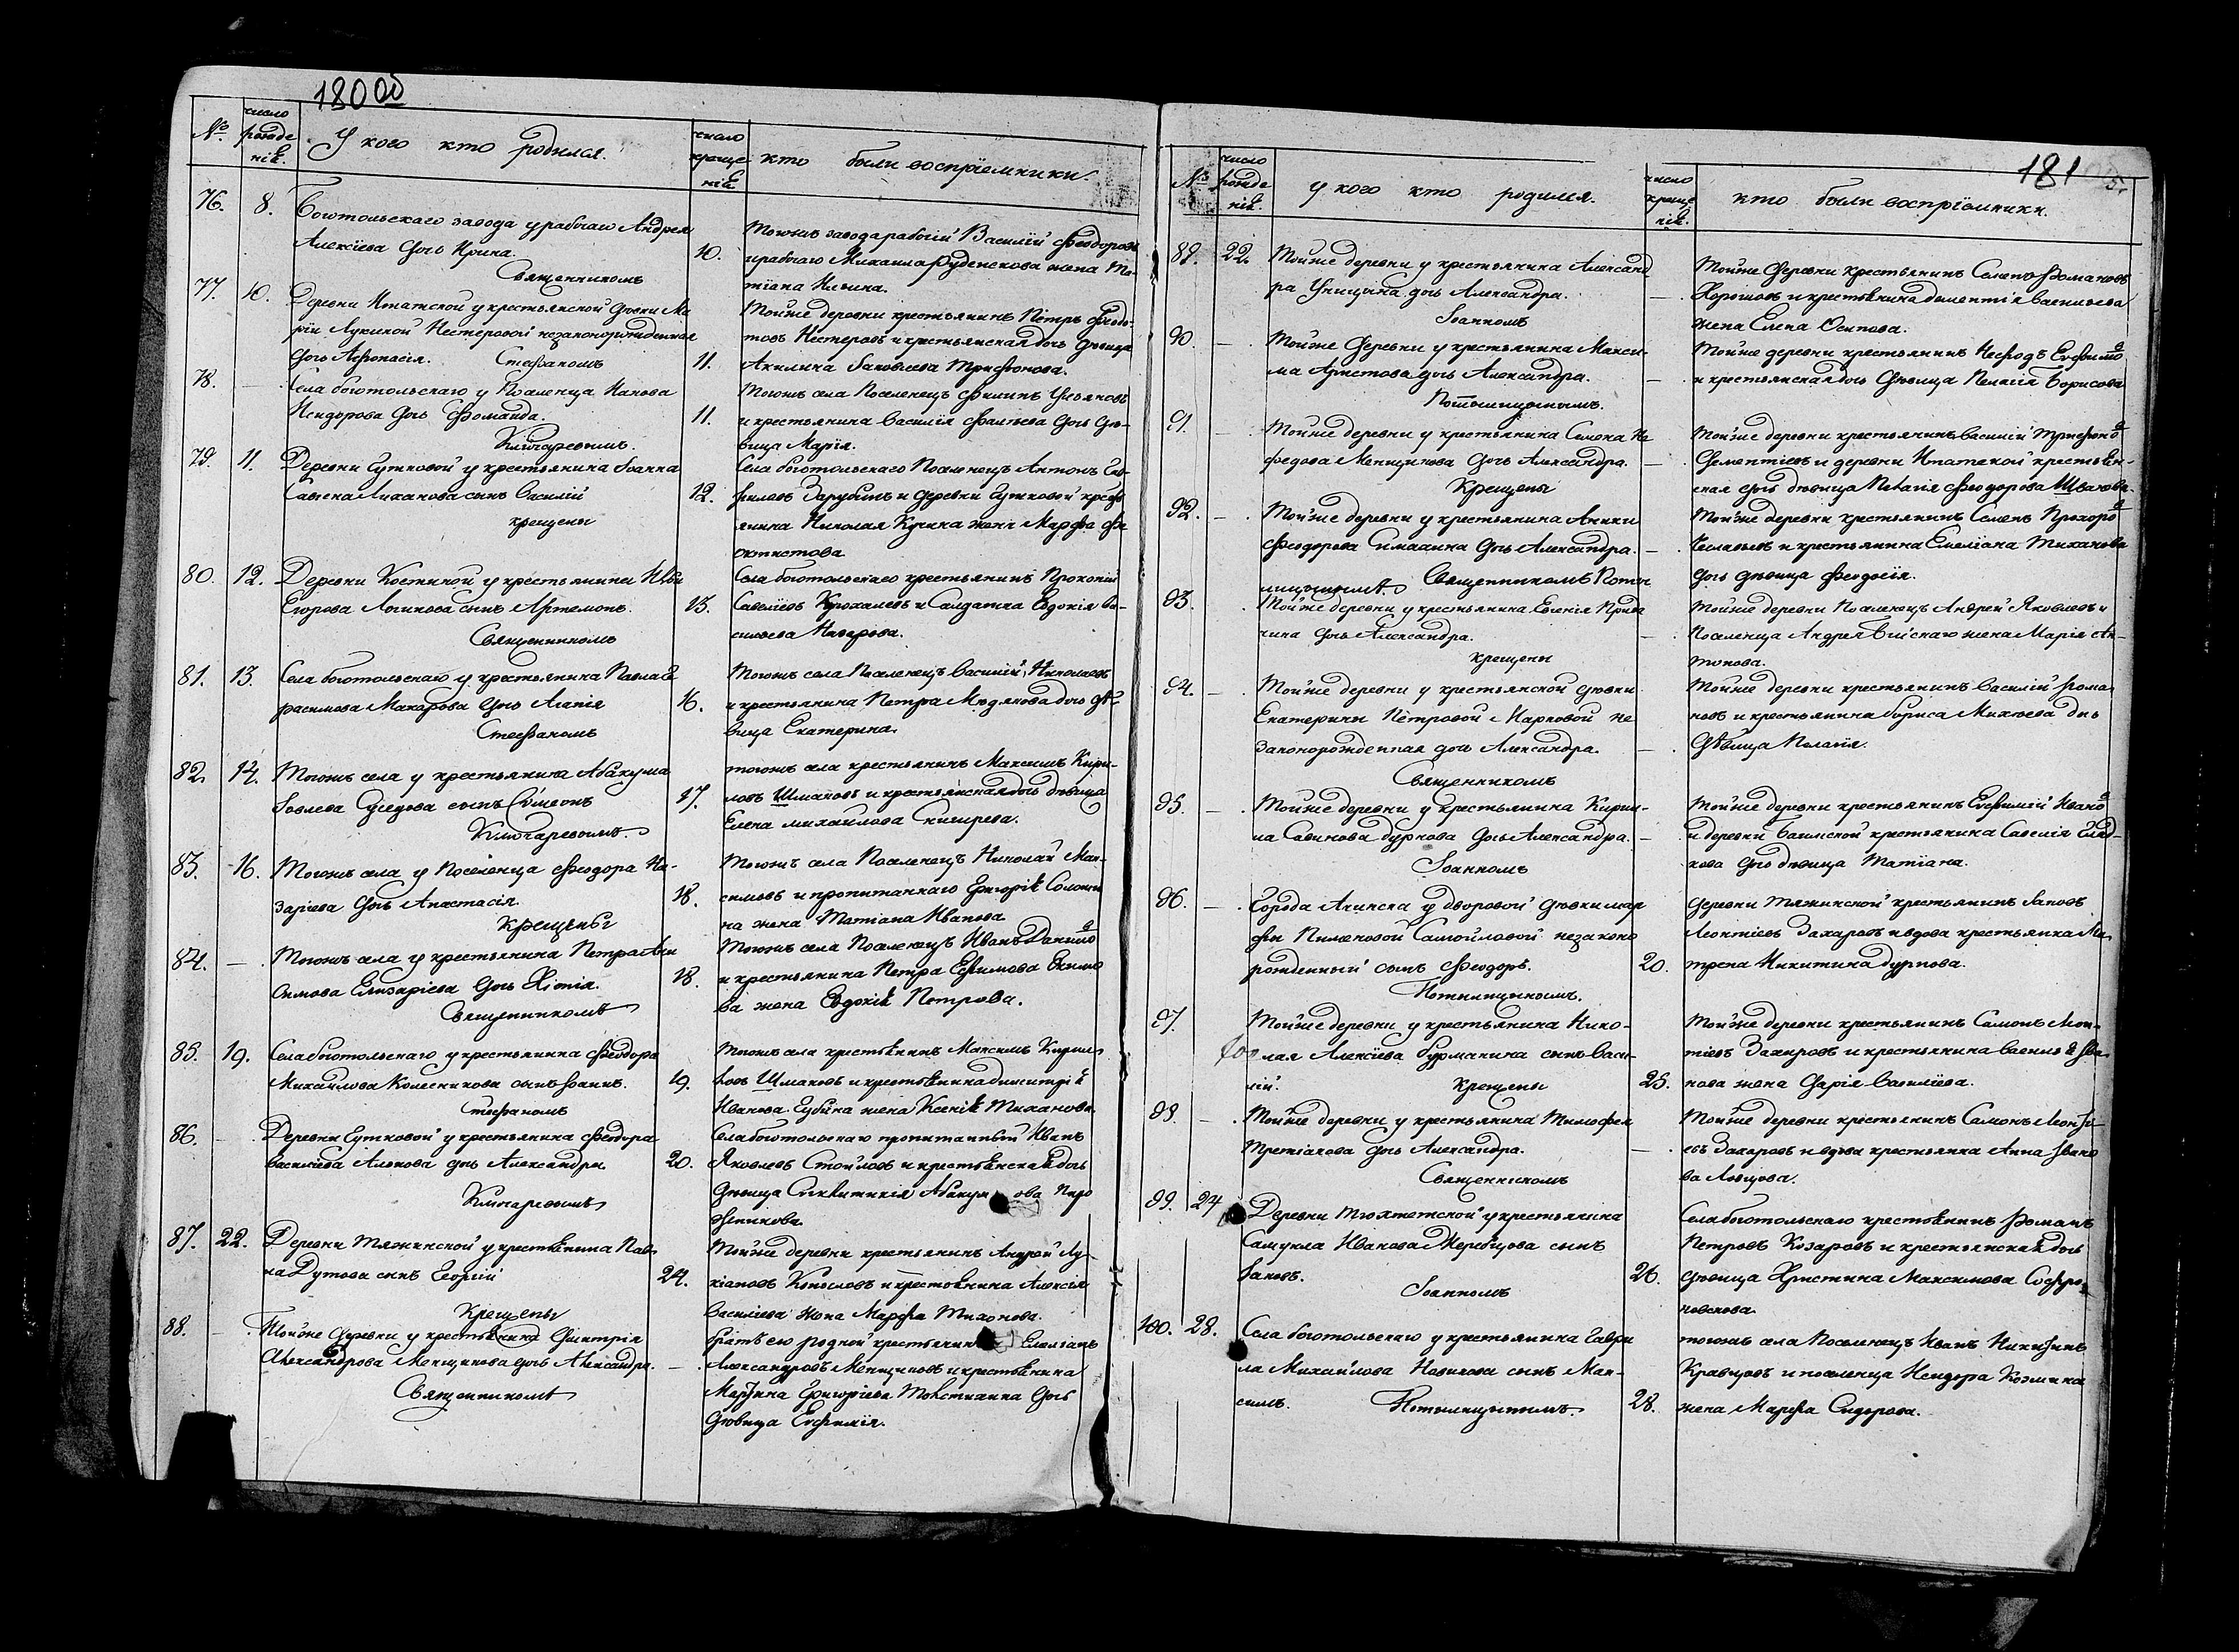 180 об
№.
число рожденiй.
У кого кто родился.
число крещенiй.
кто были воспрiемники.
76.
8.
Боготольскаго завода у рабочаго Андрея
Алексiева дочь Ирина.
Священникомъ
10.
Тогожъ завода рабочiй Василiй Феодоровъ
и рабочаго Михаила Руденскова жена Та-
тiана Ильина.
77.
10.
Деревни Итатской у крестьянской девки Ма
рiи Лукиной Нестеровой незаконорожденная
дочь Афонасiя. Стефаномъ
11.
Тойже деревни крестьянинъ Петръ Федо-
товъ Нестеровъ и крестьянская дочь девица
Акилина Яковлева Трифонова.
78.
—
Села боготольскаго у Поселенца Иакова
Исидорова дочь Фомаида.
Ключаревымъ.
11.
Тогожъ села Поселенецъ Филипъ Ульяновъ
и крестьянина Василiя дочь де-
вица Марiя.
79.
11.
Деревни Гутковой у крестьянина Iоанна
Савина Лиханова сынъ Василiй
крещены
12.
Села боготольскаго Поселенецъ Антонъ Гав-
риловъ Зарубинъ и деревни Гутковой кресть
янина Николая Кузина жена Марфа Фе
октистова
80.
12.
Деревни Косткиной у крестьянина Ивана
Егорова Логинова сынъ Артемонъ.
Священникомъ
13.
Села боготольскаго крестьянинъ Прокопiй
Савелiевъ и Салдатка Евдокiя Ва-
сильева Назарова.
81.
13.
Села боготольскаго у крестьянина Павла Ге
расимова Макарова дочь Агапiя
Стефаномъ
16.
Тогожъ села Поселенецъ Василiй Николаевъ
и крестьянина Петра Медянкова дочь де-
вица Екатерина.
82.
14.
Тогожъ села у крестьянина Абакума
Iовлева сынъ Сѵмеонъ
Ключаревымъ
17.
тогожъ села крестьянинъ Максимъ Кири-
ловъ Шмаковъ и крестьянская дочь девица
Елена Михаилова Снигирева.
83.
16.
Тогожъ села у Поселенца Феодора На-
зарiева дочь Анастасiя.
Крещены
18.
Тогожъ села Поселенецъ Николай Мак-
симовъ и пропитаннаго Григорiя Соломи
на жена Татiана Иванова
84.
—
Тогожъ села у крестьянина Петра Ани
симова Елизарiева дочь Хiонiя.
Священникомъ
18.
Тогожъ села Поселенецъ Иванъ Данило
и крестьянина Петра Ефимова Екимо
ва жена Евдокiя Петрова.
85.
19.
Села боготольскаго у крестьянина Феодора
Михайлова Колесникова сынъ Iоаннъ.
Стефаномъ
19.
Тогожъ села крестьянинъ Максимъ Кирил-
ловъ Шмаковъ и крестьянина Димитрiя
Иванова Губина жена Ксенiя Тиханова.
86.
—
Деревни Гутковой у крестьянина Феодора
Василiева Алюкова дочь Александра
Ключаревымъ
20.
Села боготольскаго пропитанный Иванъ
Яковлевъ Стойловъ и крестьянская дочь
девица Абакум ова Пиро
жникова.
87.
22.
Деревни Тяжинской у крестьянина Пав-
ла Дутова сынъ Георгiй
Крещены
24.
Тойже деревни крестьянинъ Андрей Лу-
кiановъ Копыловъ и крестьянина Алексiя
Василiева жена Марфа Тихонова.
88.
—
Тойже деревни у крестьянина Димитрiя
Александрова Менщикова дочь Александра.
Священникомъ
—
братъ его родной крестьянинъ Емелiанъ
Александровъ Менщиковъ и крестьянина
Мартина Григорiева Толстихина дочь
девица Евфимiя.
181
№
число рожденiй.
у кого кто родился.
число крещенiй.
кто были воспрiемники.
89.
22.
Тойже деревни у крестьянина Александ
ра Уницына дочь Александра.
Iоанномъ
—
Тойже деревни крестьянинъ Семенъ Романовъ
Хорошовъ и крестьянина Дементiя Васильева
жена Елена Осипова.
90.
—
Тойже деревни у крестьянина Макси-
ма Аристова дочь Александра.
Потылицынымъ.
—
Тойже деревни крестьянинъ Нефодъ Евфимо
и крестьянская дочь девица Пелагiя Борисова
91.
—
Тойже деревни у крестьянина Симона Не
федова Менщикова дочь Александра.
Крещены
—
Тойже деревни крестьянинъ Василiй Трифоно
Дементiевъ и деревни Итатской крестьян-
ская дочь девица Пелагiя Феодорова Швалова.
92.
—
Тойже деревни у крестьянина Аники
Феодорова Симахина дочь Александра.
Священникомъ Поты
лицынымъ
—
Тойже деревни крестьянинъ Семенъ Прохоро
и крестьянина Емелiана Тиханова
дочь девица Феодосiя.
93.
Тойже деревни у крестьянина Евгенiя
чина дочь Александра.
крещены
—
Тойже деревни Поселенецъ Андрей Яковлевъ и
Поселенца Андрея Бiйскаго жена Марiя Ан-
тонова.
94.
—
Тойже деревни у крестьянской девки
Екатерины Петровой Марковой не
законорожденная дочь Александра.
Священникомъ
—
Тойже деревни крестьянинъ Василiй Рома-
новъ и крестьянина Бориса Михеева дочь
девица Пелагiя.
95.
—
Тойже деревни у крестьянина Кирил-
ла Савинова Дурнова дочь Александра.
Iоанномъ
—
Тойже деревни крестьянинъ Евфимiй Ивано
и деревни Баимской крестьянина Савелiя Глад-
кова дочь девица Татiана.
96.
—
Города Ачинска у дворовой девки Мар
фы Пименовой Самойловой незаконо
рожденный сынъ Феодоръ.
Потылицынымъ.
20.
деревни Тяжинской крестьянинъ Iаковъ
Леонтiевъ Захаровъ и вдова крестьянка Ма
трена Никитина Дурнова.
97.
Тойже деревни у крестьянина Нико-
лая Алексiева Бурмакина сынъ Васи-
лiй.
Крещены
25.
Тойже деревни крестьянинъ Самонъ Леон-
тiевъ Захаровъ и крестьянина Василiя Ива
нова жена Дарiя Василiева.
98.
—
Тойже деревни у крестьянина Тимофея
Третiакова дочь Александра.
Священникомъ
—
Тойже деревни крестьянинъ Самонъ Леонтi-
евъ Захаровъ и вдова крестьянка Анна Ивано
ва Ловцова.
99.
24
Деревни Тюхтетской у крестьянина
Самуила Иванова Жеребцова сынъ
Iаковъ.
Iоанномъ
26.
Села боготольскаго крестьянинъ Романъ
Петровъ Козаровъ и крестьянская дочь
девица Христина Максимова Софро-
новскова.
100.
28.
Села боготольскаго у крестьянина Гаври
ла Михайлова Новикова сынъ Мак-
симъ.
Потылицынымъ.
28.
тогожъ села Поселенецъ Иванъ Никитинъ
Кравцовъ и поселенца Исидора Козмина
жена Марфа Сидорова.